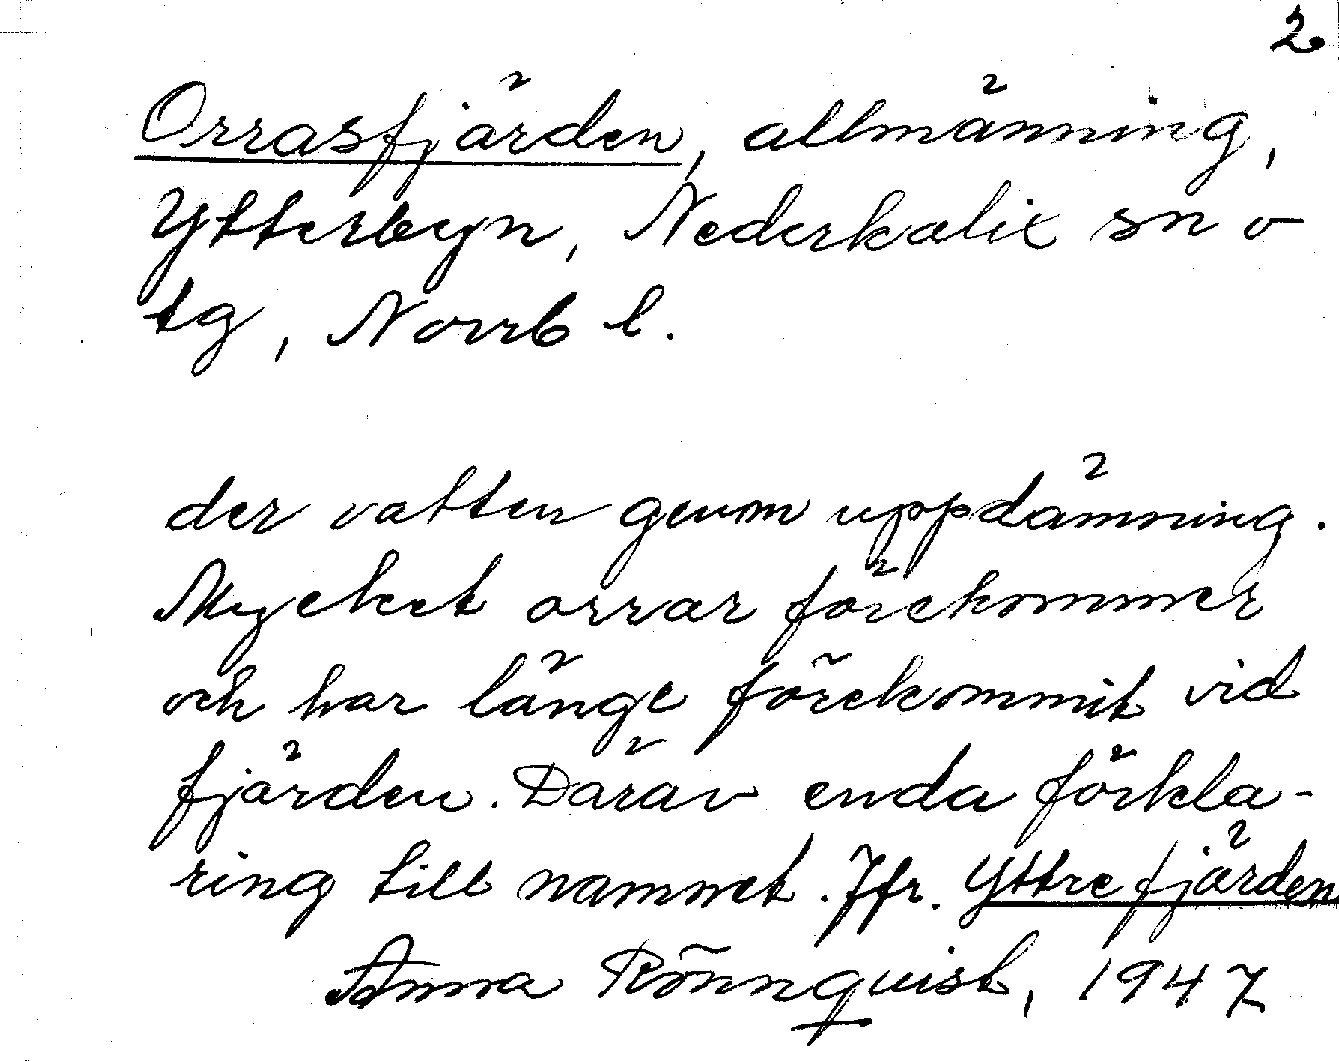 2
Orrasfjärden, allmänning,
Ytterbyn, Nederkalix sn o
tg, Norrb l.
der vatten genom uppdämning.
Mycket orrar förekommer
och har länge förekommit vid
fjärden. Därav enda förkla-
ring till namnet. Jfr. Yttrefjärden
Anna Rönnquist, 1947